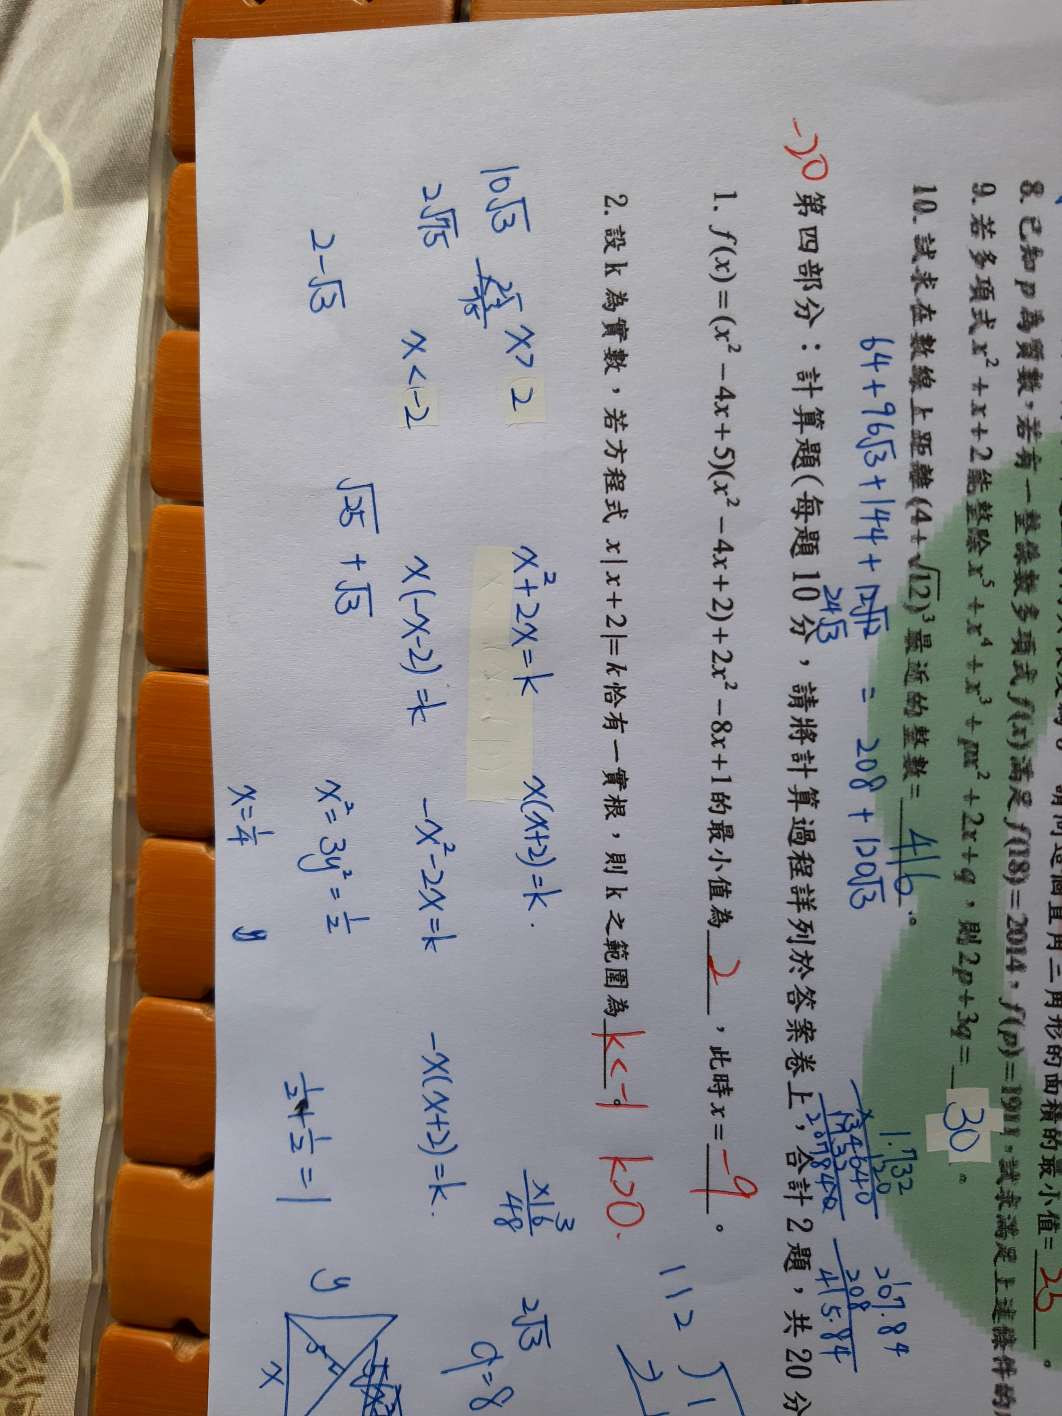 8. 已知 p 為質數，若有一整係數多項式 f(x) 滿足 f(18)=2014，f(p)=1911，試求滿足上述條件的
9. 若多項式 x² + x + 2 能整除 x⁵ + x⁴ + x³ + px² + 2x + q，則 2p + 3q = 30。
10. 試求在數線上距離 (4+√12)³ 最近的整數 = 416。
64+96√3+144+12√12 = 208+120√3
24√3
1.732
x 120
34640
1732
207840
207.84
208
415.84
-20
第四部分：計算題(每題 10 分，請將計算過程詳列於答案卷上，合計 2 題，共 20 分
1. f(x) = (x² − 4x + 5)(x² − 4x + 2) + 2x² − 8x + 1 的最小值為 2，此時 x = -9。
2. 設 k 為實數，若方程式 x|x + 2| = k 恰有一實根，則 k 之範圍為 k<-1。 k>0.
112
10√3
x>2
x²+2x=k
x(x+2)=k.
x16
48
2√3
2√75
x<-2
x(-x-2)=k
-x²-2x=k
-x(x+2)=k.
q=8
2-√3
√25+√3
x²=3y²=1/2
1/2+1/2=1
y
x=1/4
y
x